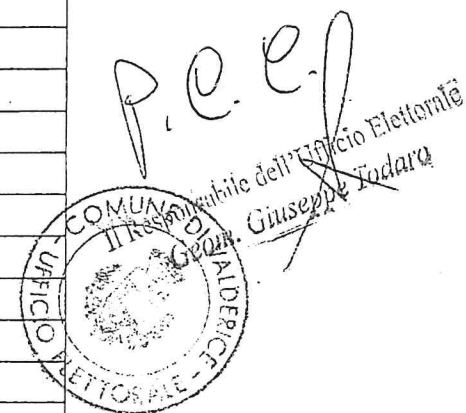 p. c. c.
Il Responsabile dell'Ufficio Elettorale
Geom. Giuseppe Todaro
COMUNE DI VALDERICE - UFFICIO ELETTORALE -